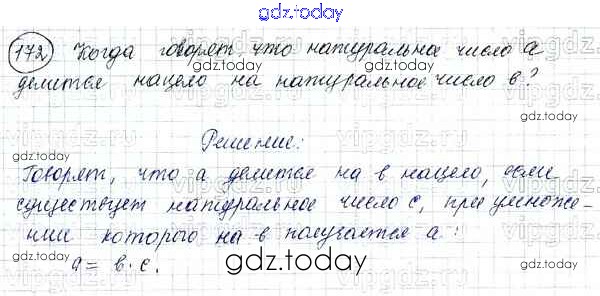 gdz.today
172 Когда говорят, что натуральное число а
делится нацело на натуральное число в?
gdz.today
gdz.today
gdz.today
Решение:
vipgdz
vipgdz
gdz.today
Говорят, что а делится на в нацело, если
существует натуральное число с, при умноже-
нии которого на в получается а:
gdz.today
gdz.today
а = в · с.
gdz.today